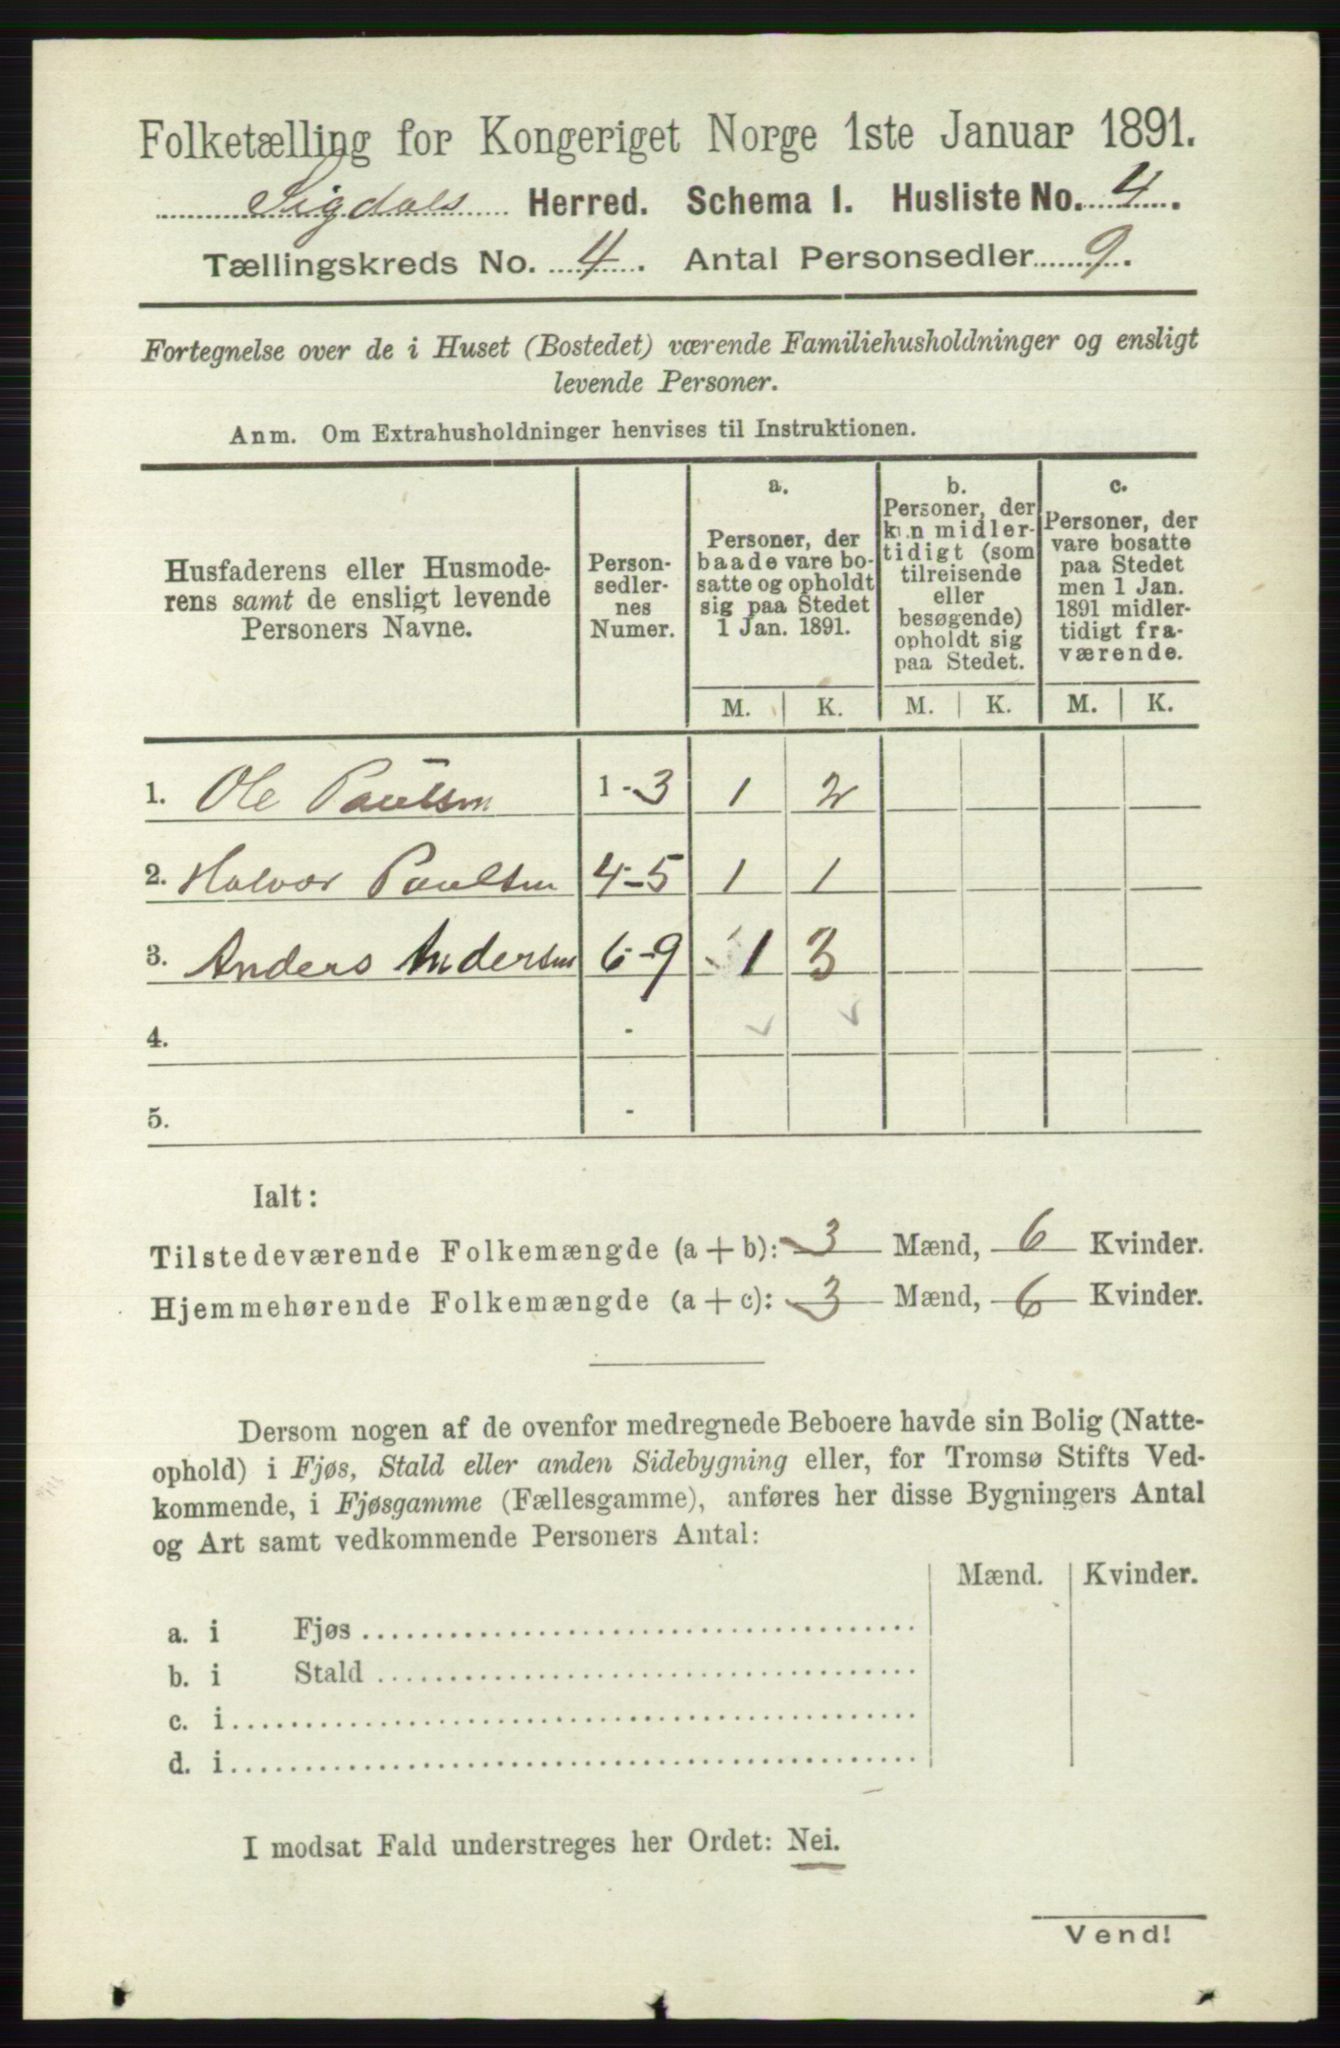 Folketælling for Kongeriget Norge 1ste Januar 1891.
Sigdals Herred. Schema I. Husliste No. 4.
Tællingskreds No. 4. Antal Personsedler 9.
Fortegnelse over de i Huset (Bostedet) værende Familiehusholdninger og ensligt
levende Personer.
Anm. Om Extrahusholdninger henvises til Instruktionen.
Husfaderens eller Husmode-
rens samt de ensligt levende
Personers Navne.
Person-
sedler-
nes
Numer.
a.
Personer, der
baade vare bo-
satte og opholdt
sig paa Stedet
1 Jan. 1891.
b.
Personer, der
kun midler-
tidigt (som
tilreisende
eller
besøgende)
opholdt sig
paa Stedet.
c.
Personer, der
vare bosatte
paa Stedet
men 1 Jan.
1891 midler-
tidigt fra-
værende.
M. K. M. K. M. K.
1. Ole Paulsen 1-3 1 2
2. Halvor Paulsen 4-5 1 1
3. Anders Andersen 6-9 1 3
4. -
5. -
Ialt:
Tilstedeværende Folkemængde (a + b): 3 Mænd, 6 Kvinder.
Hjemmehørende Folkemængde (a + c): 3 Mænd, 6 Kvinder.
Dersom nogen af de ovenfor medregnede Beboere havde sin Bolig (Natte-
ophold) i Fjøs, Stald eller anden Sidebygning eller, for Tromsø Stifts Ved-
kommende, i Fjøsgamme (Fællesgamme), anføres her disse Bygningers Antal
og Art samt vedkommende Personers Antal:
Mænd. Kvinder.
a. i Fjøs
b. i Stald
c. i
d. i
I modsat Fald understreges her Ordet: Nei.
Vend!